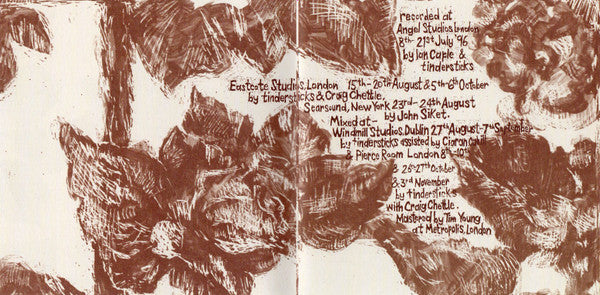 recorded at
Angel Studios, London
8th - 21st July '96
by Ian Caple &
tindersticks
Eastcote Studios, London 15th - 20th August & 5th-6th October
by tindersticks & Craig Chettle.
Scarsound, New York 23rd - 24th August
by John Siket.
Mixed at -
Windmill Studios, Dublin 27th August - 7th September
by tindersticks assisted by Ciaran Cahill
& Pierce Room London 8th - 10th
& 26th 27th October
& 3rd November
by tindersticks
with Craig Chettle.
Mastered by Tim Young
at Metropolis, London